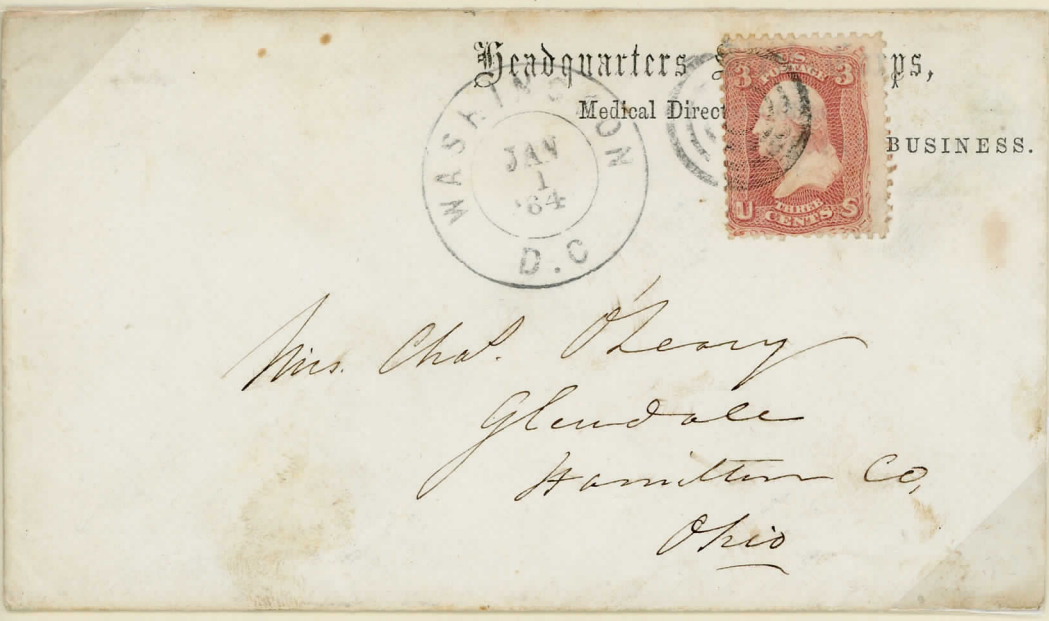 Headquarters ps,
Medical Direct
BUSINESS.
WASHINGTON
JAN
1
'64
D.C
3 3
U.S.
POSTAGE
U S
THREE
CENTS
Mrs. Chas. O'Leary
Glendale
Hamilton Co,
Ohio